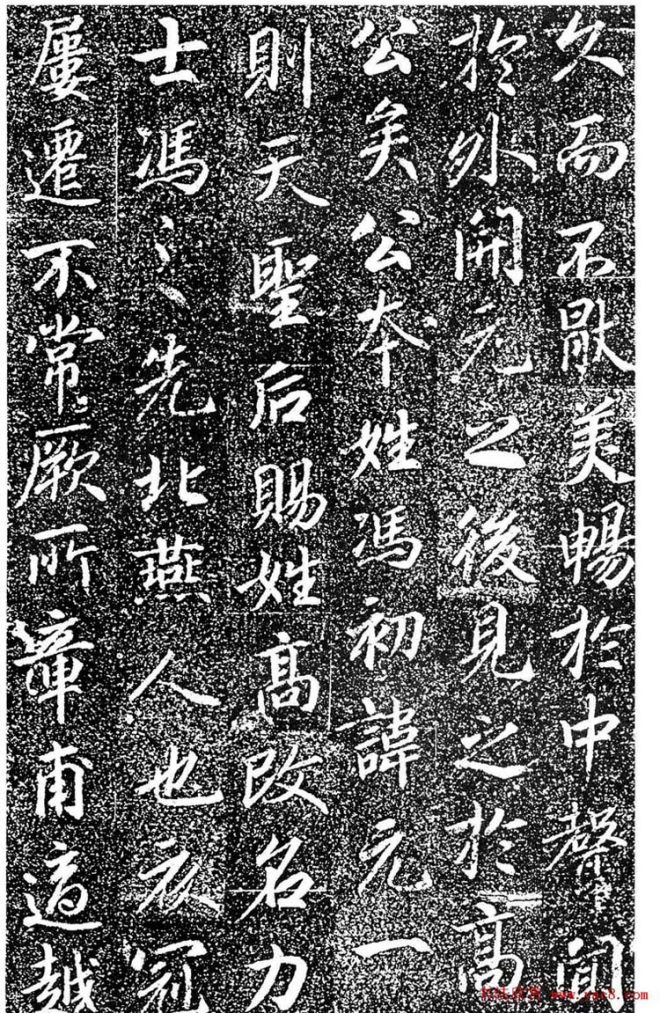 久而不猒美暢於中聲聞
於外開元已後見之於高
公矣公本姓馮初諱元一
則天聖后賜姓高改名力
士馮之先北燕人也衣冠
屢遷不常厥所章甫適越